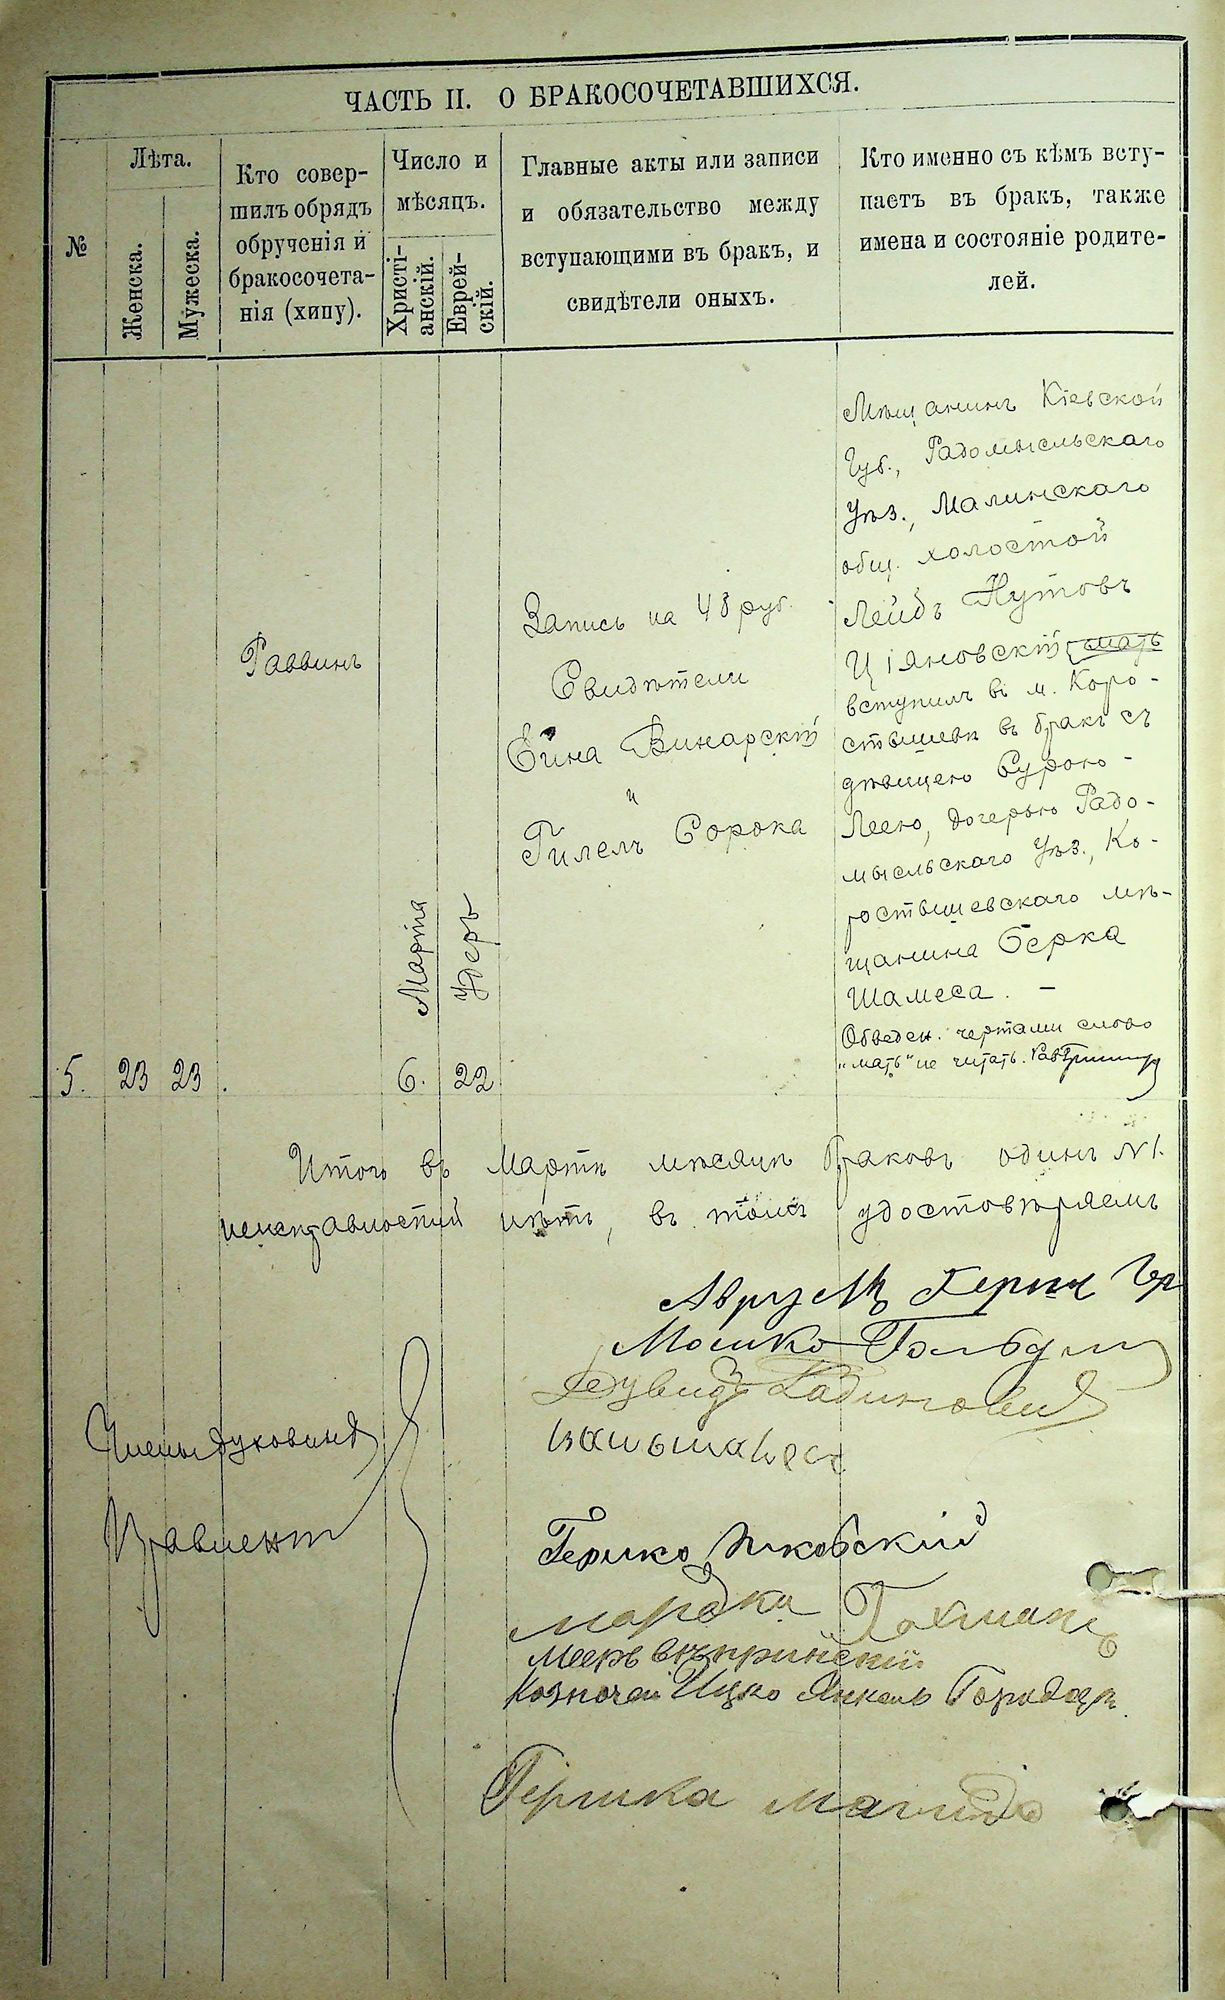 ЧАСТЬ II. О БРАКОСОЧЕТАВШИХСЯ.
№
Лѣта.
Женска.
Мужеска.
Кто совер-
шилъ обрядъ
обрученія и
бракосочета-
нія (хипу).
Число и
мѣсяцъ.
Христі-
анскій.
Еврей-
скій.
Главные акты или записи
и обязательство между
вступающими въ бракъ, и
свидѣтели оныхъ.
Кто именно съ кѣмъ всту-
паетъ въ бракъ, также
имена и состояніе родите-
лей.
5.
23
23
Раввинъ
Марта
6.
Удеръ
22
Запись на 48 руб.
Свидѣтели
Ейна Винарскій
и
Гилель Сорока
Мѣщанинъ Кіевской
Губ., Радомысльскаго
Уѣз., Малинскаго
общ. холостой
Лейбъ Нутовъ
Ціяновскій мать
вступилъ въ м. Коро-
стышевѣ въ бракъ съ
дѣвицею Сурою-
Леею, дочерью Радо-
мысльскаго Уѣз., Ко-
ростышевскаго мѣ-
щанина Берка
Шамеса. —
Обведен. чертами слово
"мать" не читать. Рав
Итого въ Мартѣ мѣсяцѣ браковъ одинъ №1.
неисправностей нѣтъ, въ томъ удостовѣряемъ
Мошко
Члены духовнаго
Правленія
Гершко
Мордко
Мееръ
Казначей Ицко Янкель
Гершка